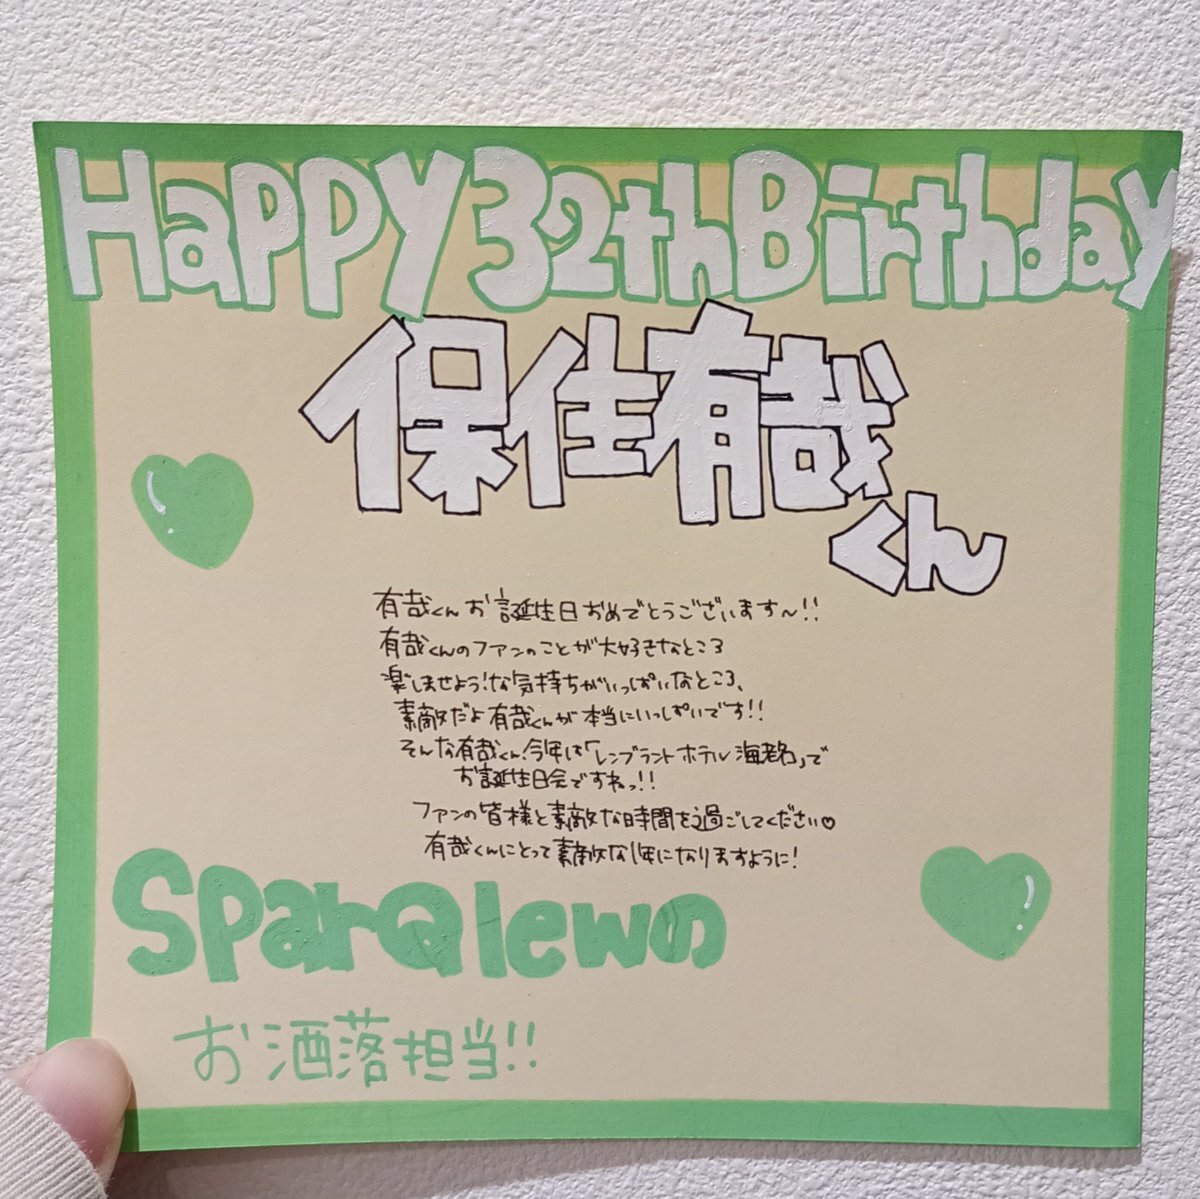 Happy 32th Birthday
保住有哉
くん
有哉くんお誕生日おめでとうございます〜!!
有哉くんのファンのことが大好きなところ
楽しませよう!な気持ちがいっぱいなところ、
素敵だよ有哉くんが本当にいっぱいです!!
そんな有哉くん!今年は「レンブラントホテル海老名」で
お誕生日会ですねっ!!
ファンの皆様と素敵な時間を過ごしてください♡
有哉くんにとって素敵な1年になりますように!
SparQlewの
お洒落担当!!